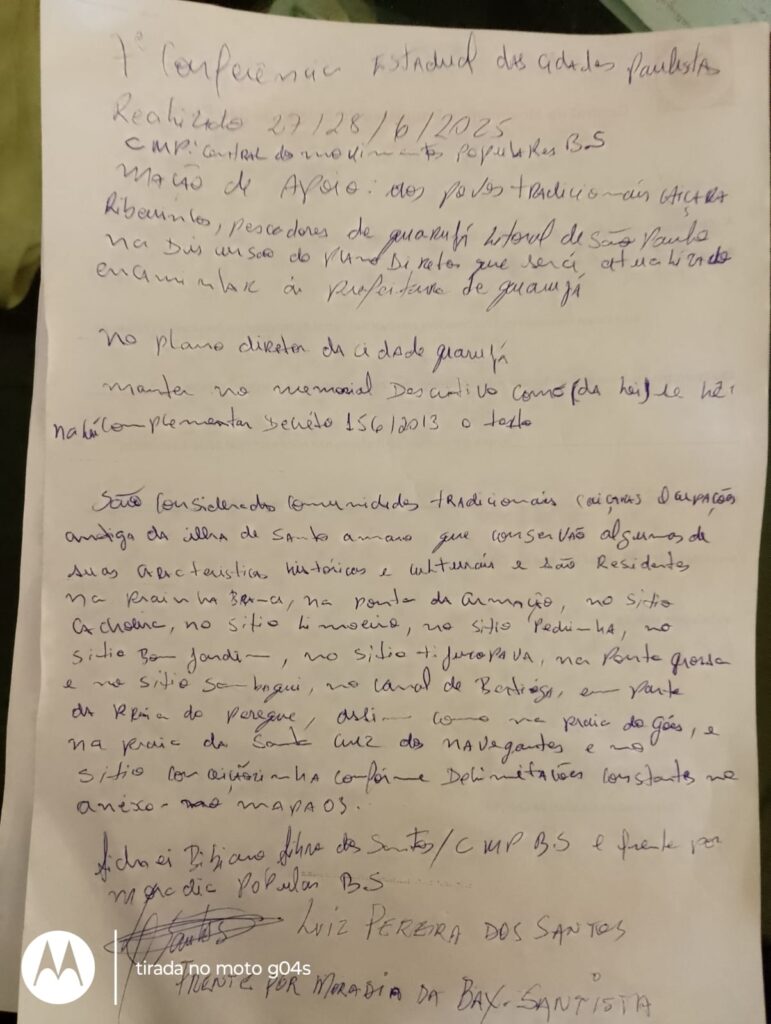 7ª Conferência Estadual das cidades Paulistas
Realizado 27/28/6/2025
CMP: Central do movimentos Populares B.S
Mação de Apoio: dos povos tradicionais CAIÇARA
Ribeirinhos, pescadores de guarujá litoral de São Paulo
na Discursão do Plano Diretor que será atualizado
encaminhar a prefeitura de guarujá
No plano diretor da cidade guarujá
manter no memorial Descritivo como (da lei) se lê:
na lei Complementar Decréto 156/2013 o texto
São consideradas comunidades tradicionais caiçaras ocupações
antiga da ilha de Santo amaro que conservão algumas de
suas caracteristicas históricas e culturais e são Residentes
na Prainha Branca, na ponta da armação, no Sitio
Cachoeira, no Sitio Limoeiro, no sitio Pedrinha, no
sitio Bom Jardim, no sitio tijucopava, na Ponta grossa
e no sitio Sambaqui, no canal de Bertioga, em parte
da Praia do Pereque, assim como na praia do Góes, e
na praia da Santa Cruz dos navegantes e no
sitio conceiçãozinha conforme Delimitações constantes no
anéxo - MAPA 03.
Bibiano dos Santos / CMP B.S e frente por
moradia popular B.S
Santos LUIZ PEREIRA DOS SANTOS
FRENTE POR MORADIA DA BAX. SANTISTA
tirada no moto g04s